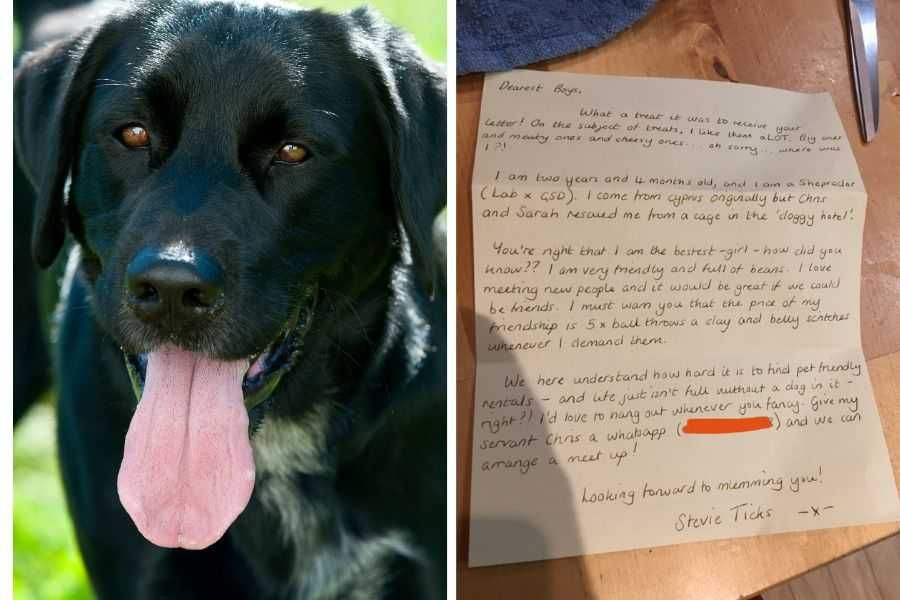 Dearest Boys,
What a treat it was to receive your
letter! On the subject of treats, I like them aLOT. Big ones
and meaty ones and cheesy ones... oh sorry... where was
I?!
I am two years and 4 months old, and I am a Sheprador
(Lab x GSD). I come from cyprus originally but Chris
and Sarah rescued me from a cage in the 'doggy hotel'.
You're right that I am the bestest-girl - how did you
know?? I am very friendly and full of beans. I love
meeting new people and it would be great if we could
be friends. I must warn you that the price of my
friendship is 5x ball throws a day and belly scritches
whenever I demand them.
We here understand how hard it is to find pet friendly
rentals - and life just isn't full without a dog in it -
right?! I'd love to hang out whenever you fancy. Give my
servant Chris a whatsapp ( ) and we can
arrange a meet up!
Looking forward to meeting you!
Stevie Ticks -x-